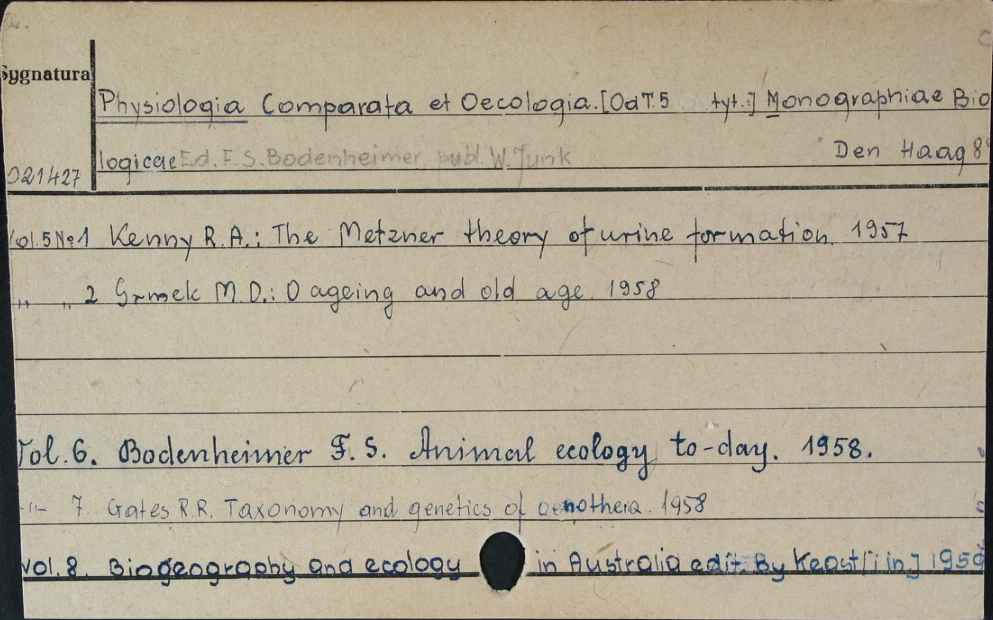 Sygnatura
Physiologia Comparata et Oecologia. [Od T.5 tyt.:] Monographiae Bio
logicae Ed. F.S. Bodenheimer, publ. W. Junk Den Haag 8°
021427
Vol. 5 № 1 Kenny R.A.: The Metzner theory of urine formation 1957
" " 2 Grmek M.D.: O ageing and old age. 1958
Vol. 6. Bodenheimer F. S. Animal ecology to-day. 1958.
-"- 7. Gates R.R. Taxonomy and genetics of oenothera. 1958
Vol. 8. Biogeography and ecology in Australia edit. By Keast [i in.] 1959